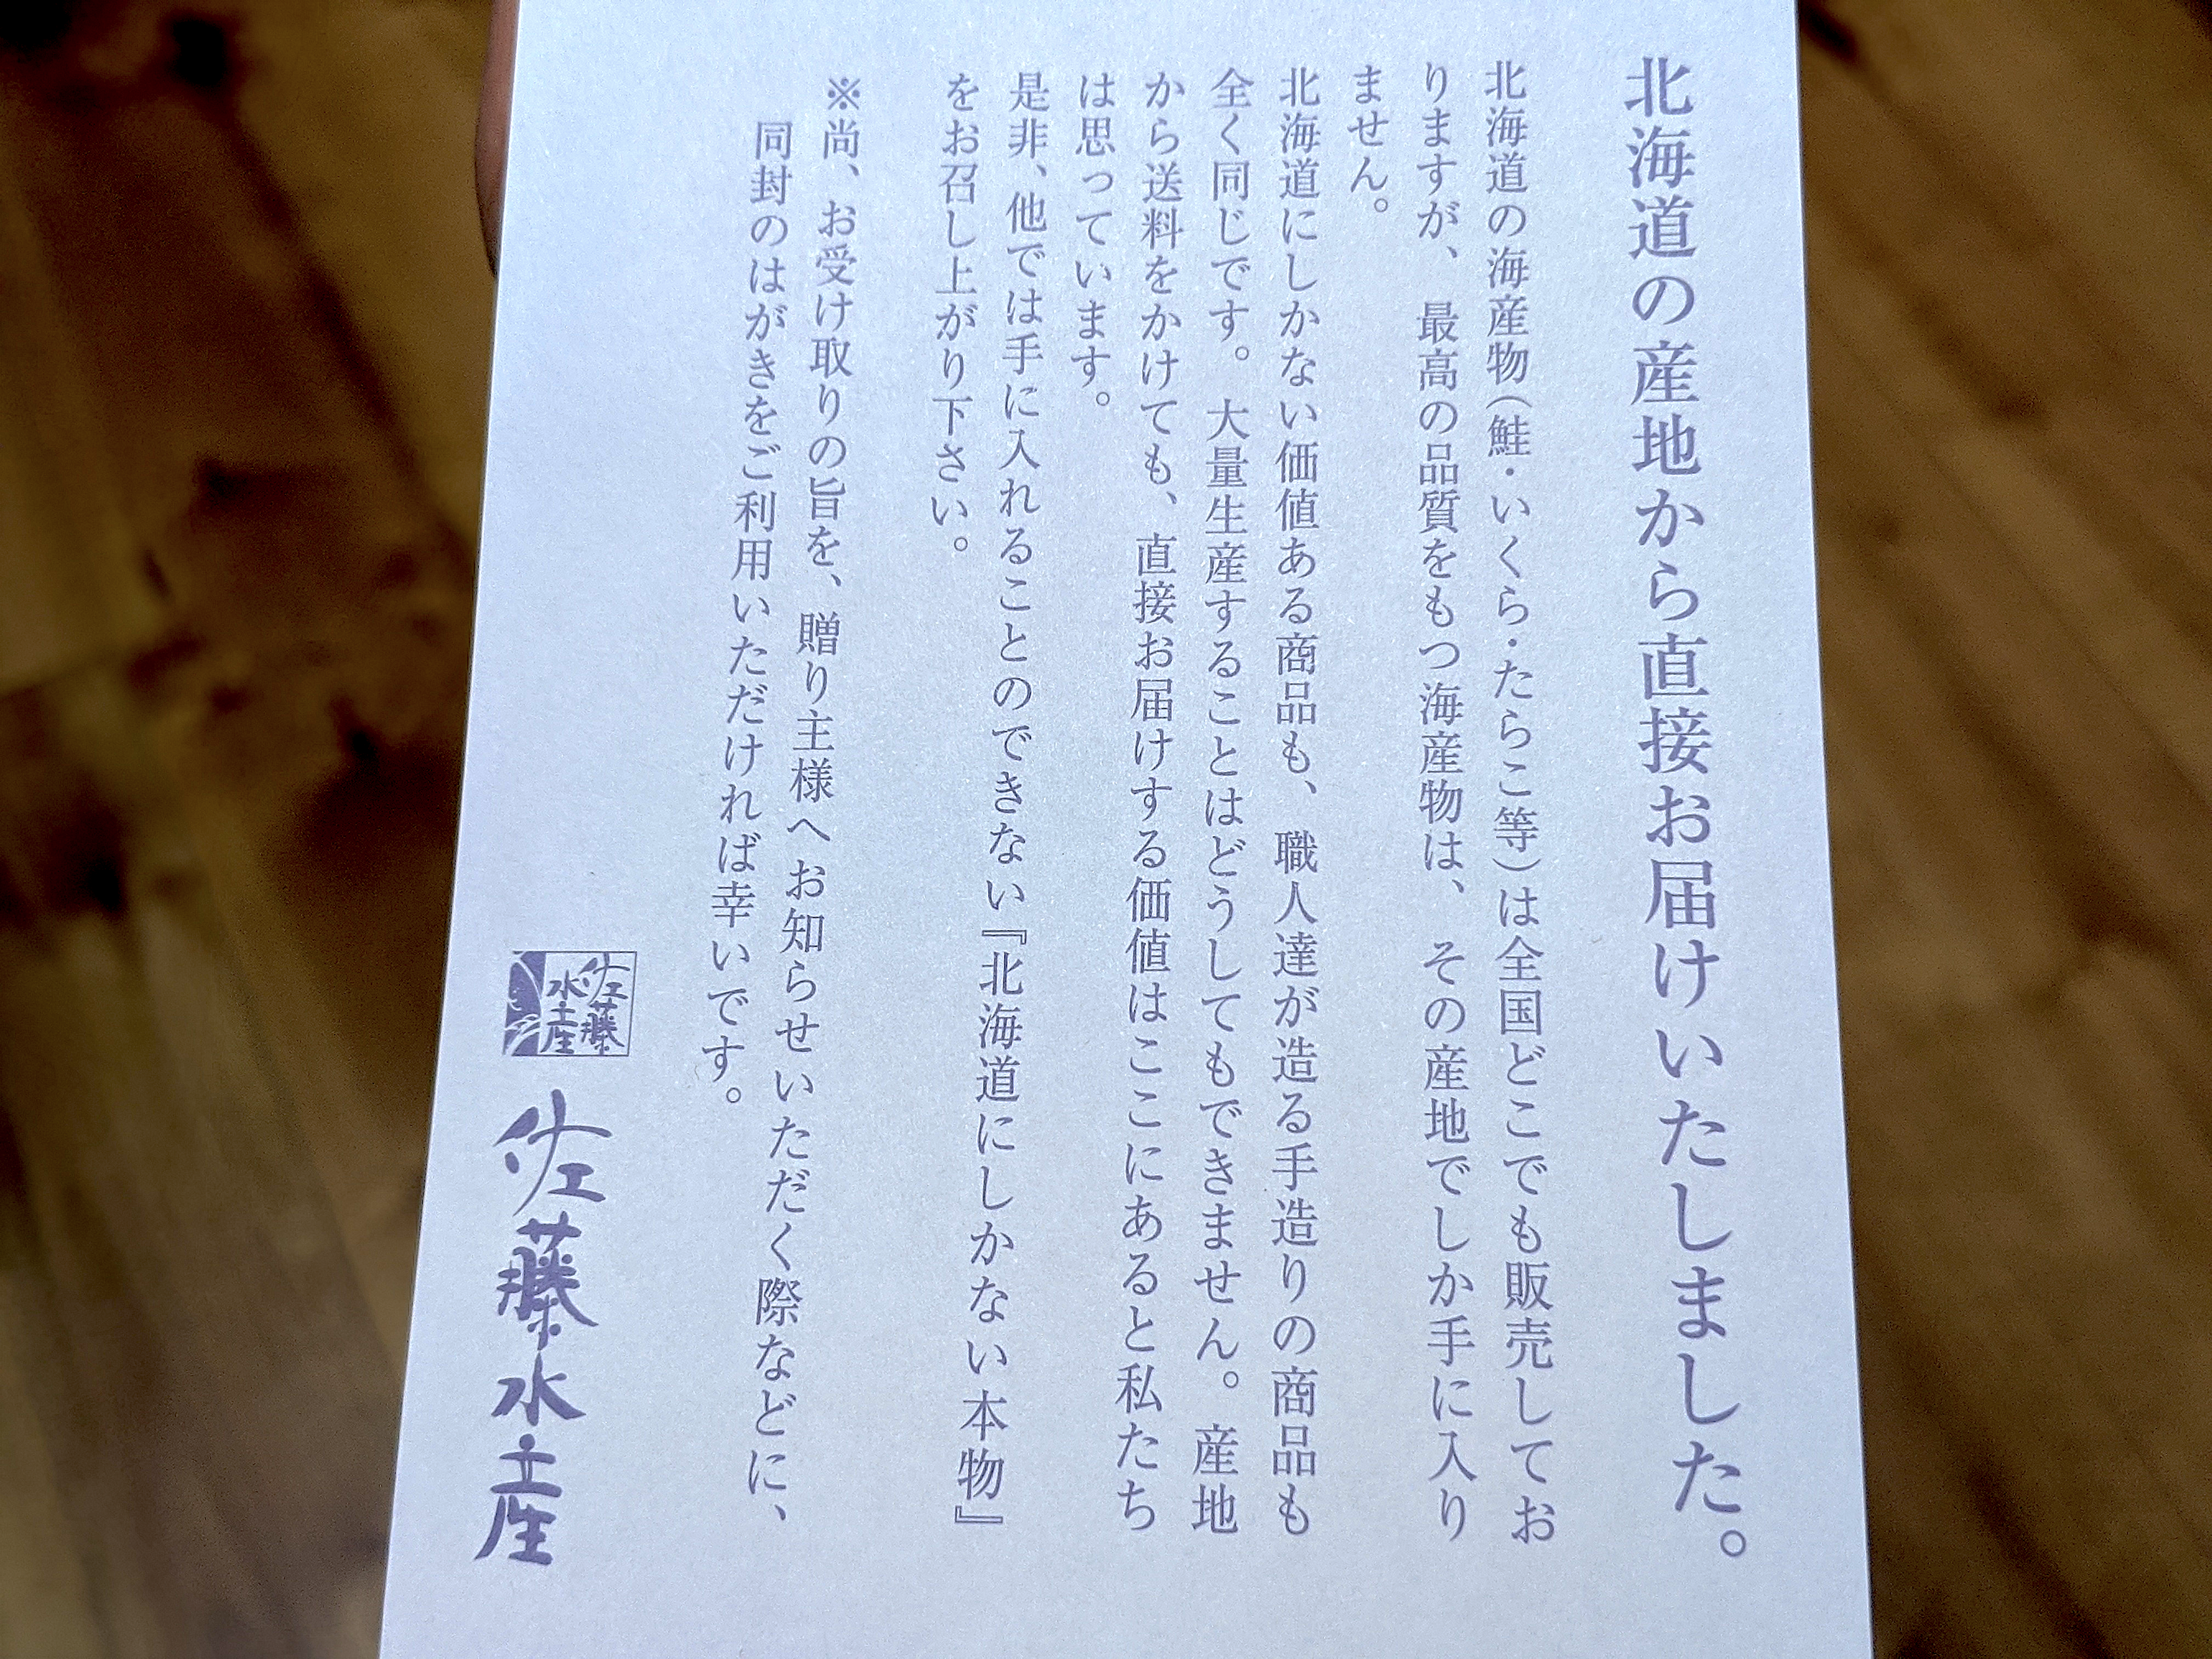 北海道の産地から直接お届けいたしました。
北海道の海産物(鮭・いくら・たらこ等)は全国どこでも販売してお
りますが、最高の品質をもつ海産物は、その産地でしか手に入り
ません。
北海道にしかない価値ある商品も、職人達が造る手造りの商品も
全く同じです。大量生産することはどうしてもできません。産地
から送料をかけても、直接お届けする価値はここにあると私たち
は思っています。
是非、他では手に入れることのできない『北海道にしかない本物』
をお召し上がり下さい。
※尚、お受け取りの旨を、贈り主様へお知らせいただく際などに、
同封のはがきをご利用いただければ幸いです。
佐藤
水産
佐藤水産